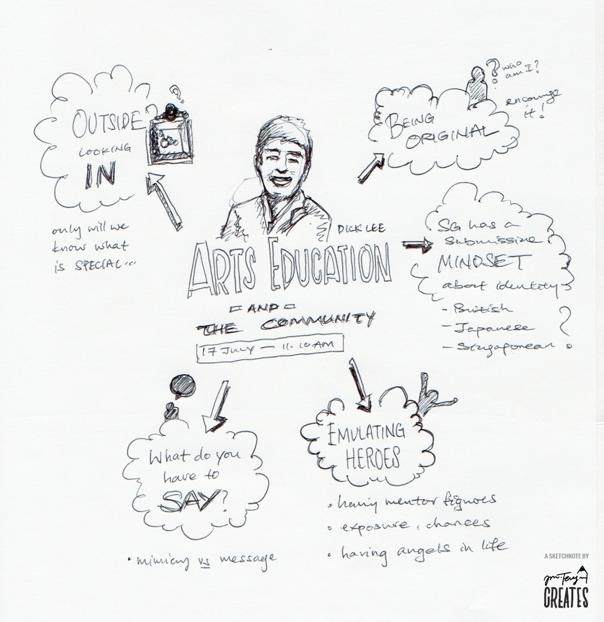 OUTSIDE
LOOKING
IN
only will we
know what
is SPECIAL...
?
DICK LEE
ARTS EDUCATION
AND
THE COMMUNITY
17 JULY — 11.10AM
? who
am I?
encourage
it!
BEING
ORIGINAL
SG has a
submissive
MINDSET
about identity
- British
- Japanese
- Singaporean
?
What do you
have to
SAY?
• mimicry vs message
EMULATING
HEROES
• having mentor figures
• exposure, chances
• having angels in life
A SKETCHNOTE BY
CREATES